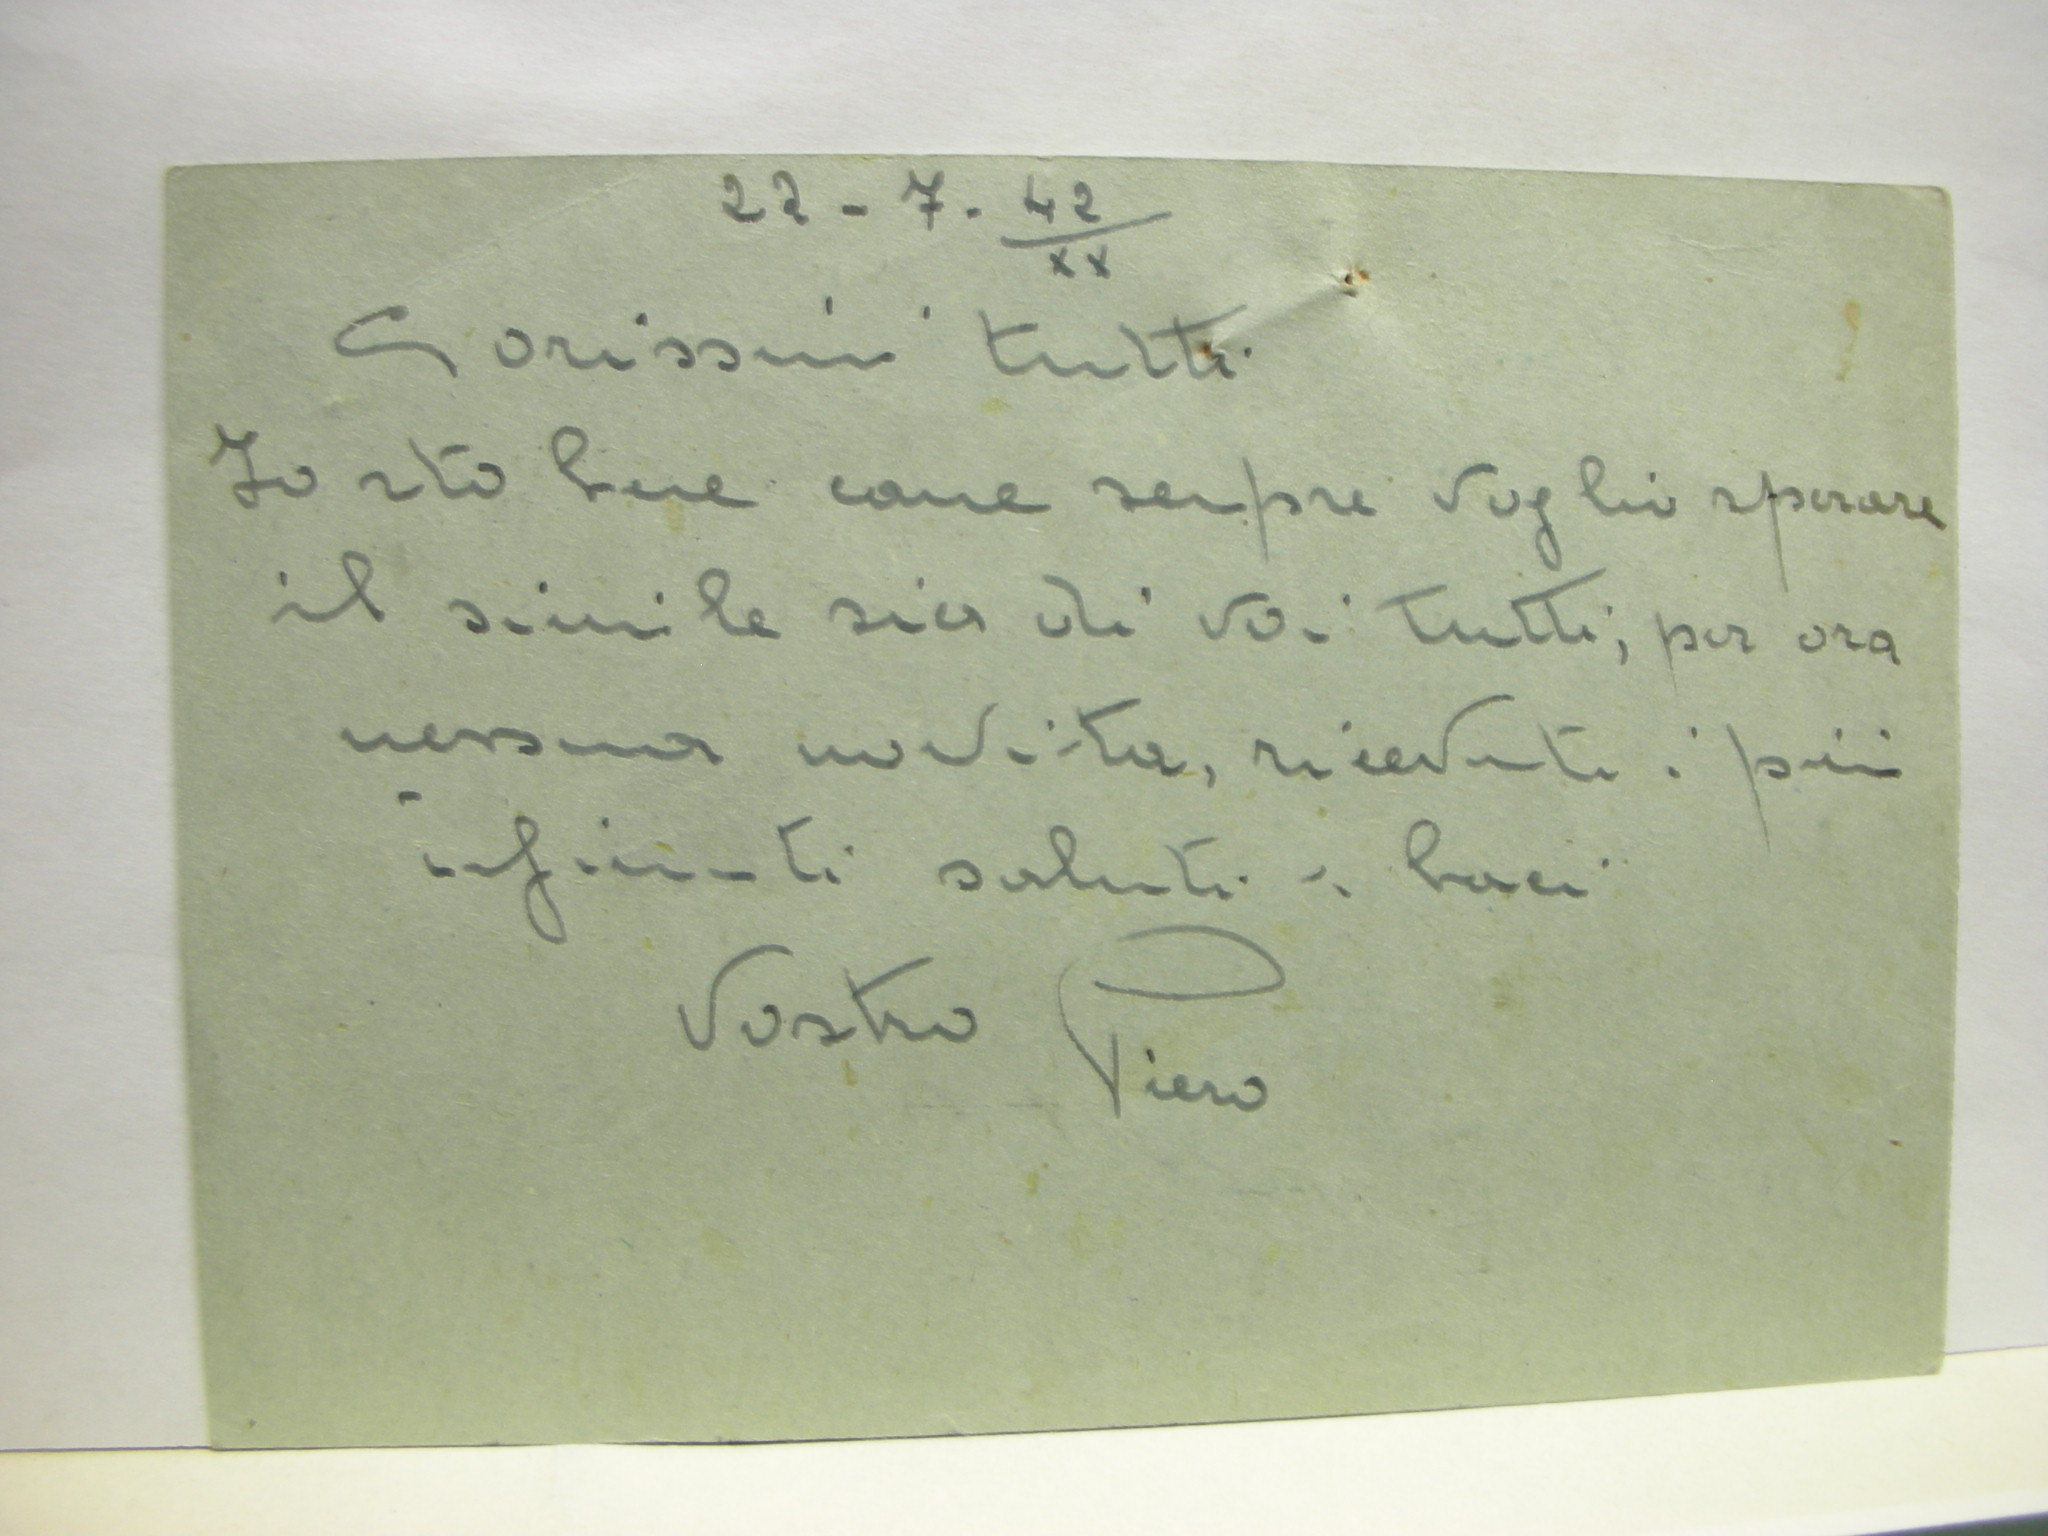 22-7-42
XX
Carissimi tutti.
Io sto bene come sempre voglio sperare
il simile sia di voi tutti, per ora
nessuna novita, riceveti i più
infiniti saluti e baci
Vostro Piero